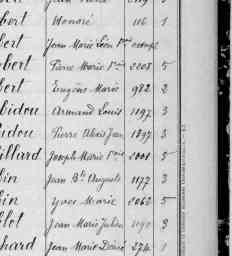 bert Honoré 116 1
bert Jean Marie Léon
bert Pierre Marie 2208 5
bert Eugène Marie 982 2
bidou Armand Louis 1197 3
idou Pierre Alexis Jean 1897 3
illard Joseph Marie 1001 5
bin Jean Bte Auguste 1177 3
bin Yves Marie 2062 5
blot Jean Marie Julien 1190 3
chard Jean Marie Désiré 274 1